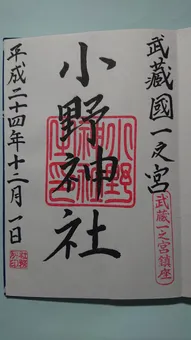 武蔵國一之宮
武蔵一之宮鎮座
小野神社
平成二十四年十二月一日